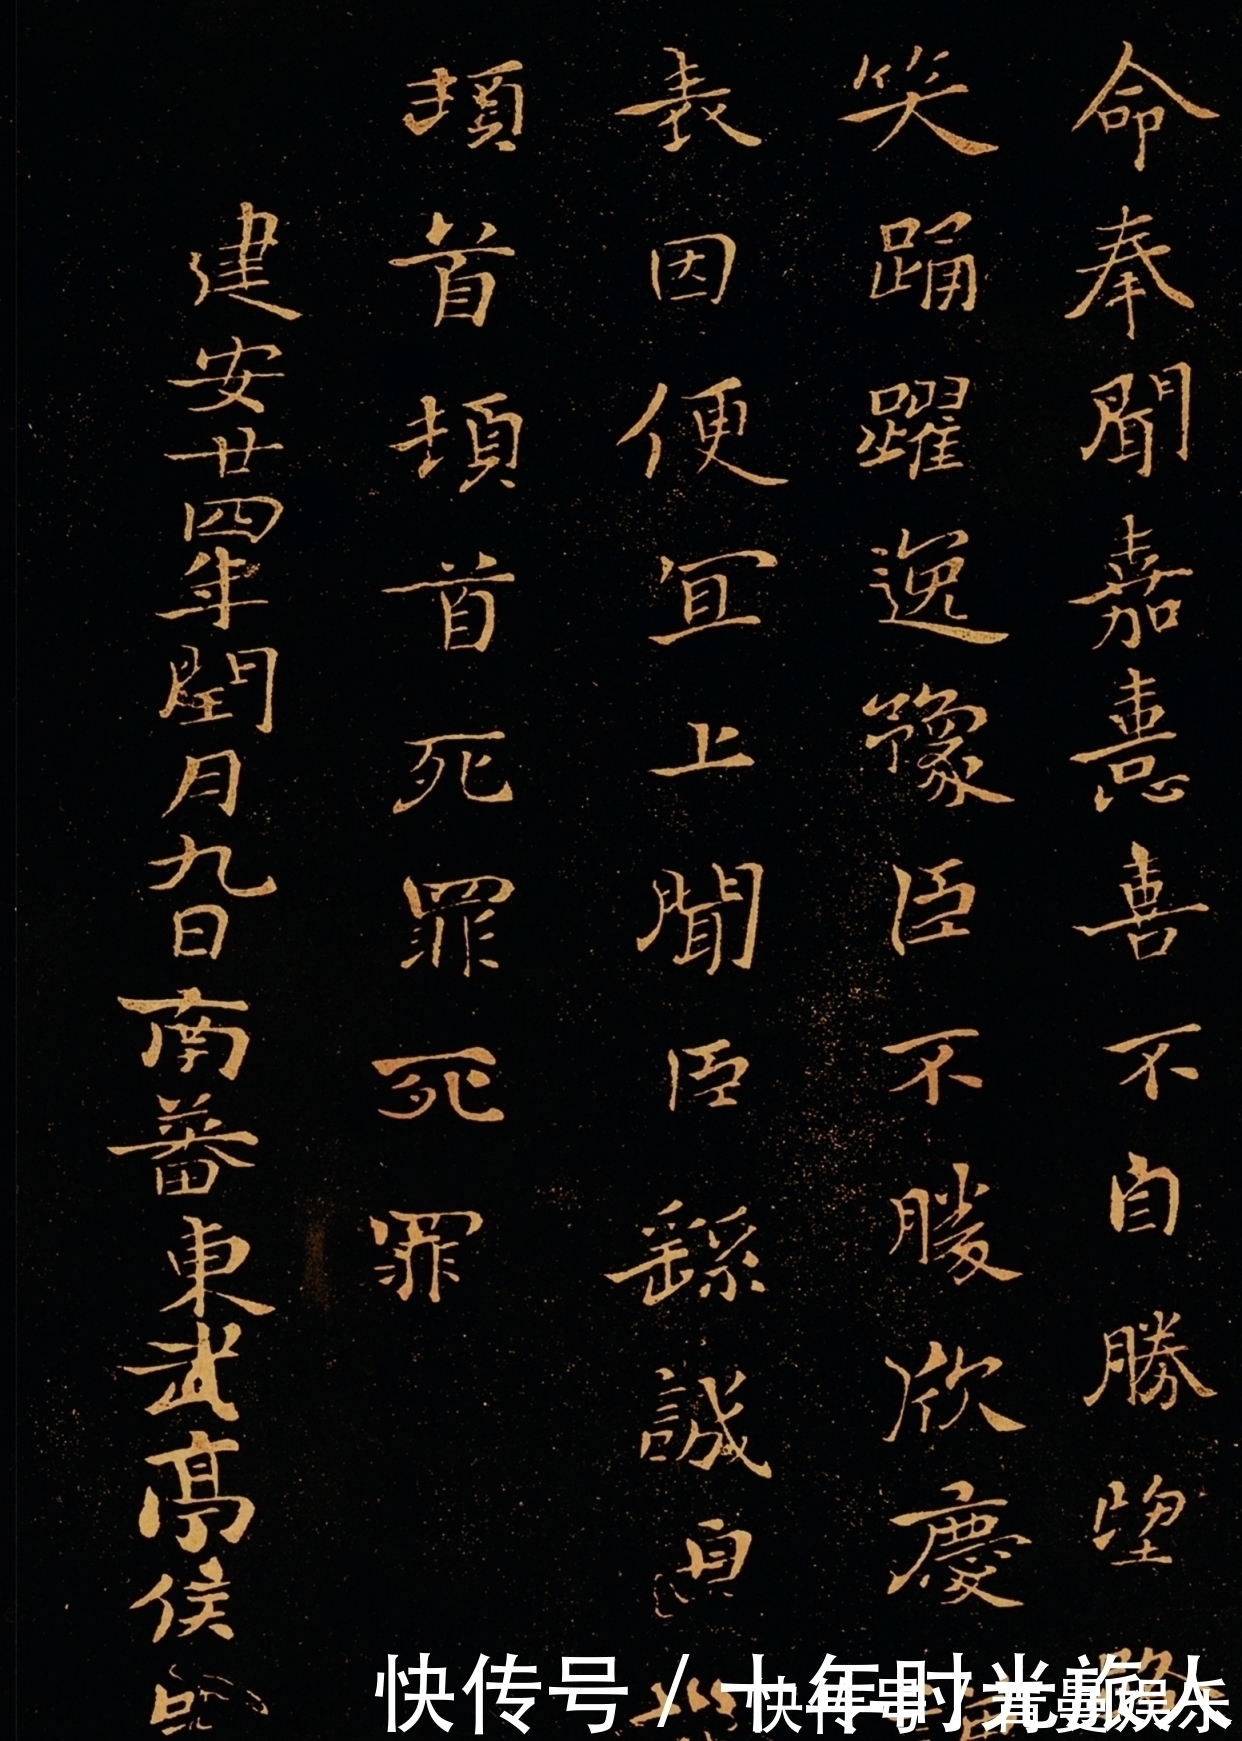 命奉聞嘉憙喜不自勝望
笑踊躍逸豫臣不勝欣慶
表因便宜上聞臣繇誠
頓首頓首死罪死罪
建安廿四年閏月九日南蕃東武亭侯
快传号/十年时光旅人